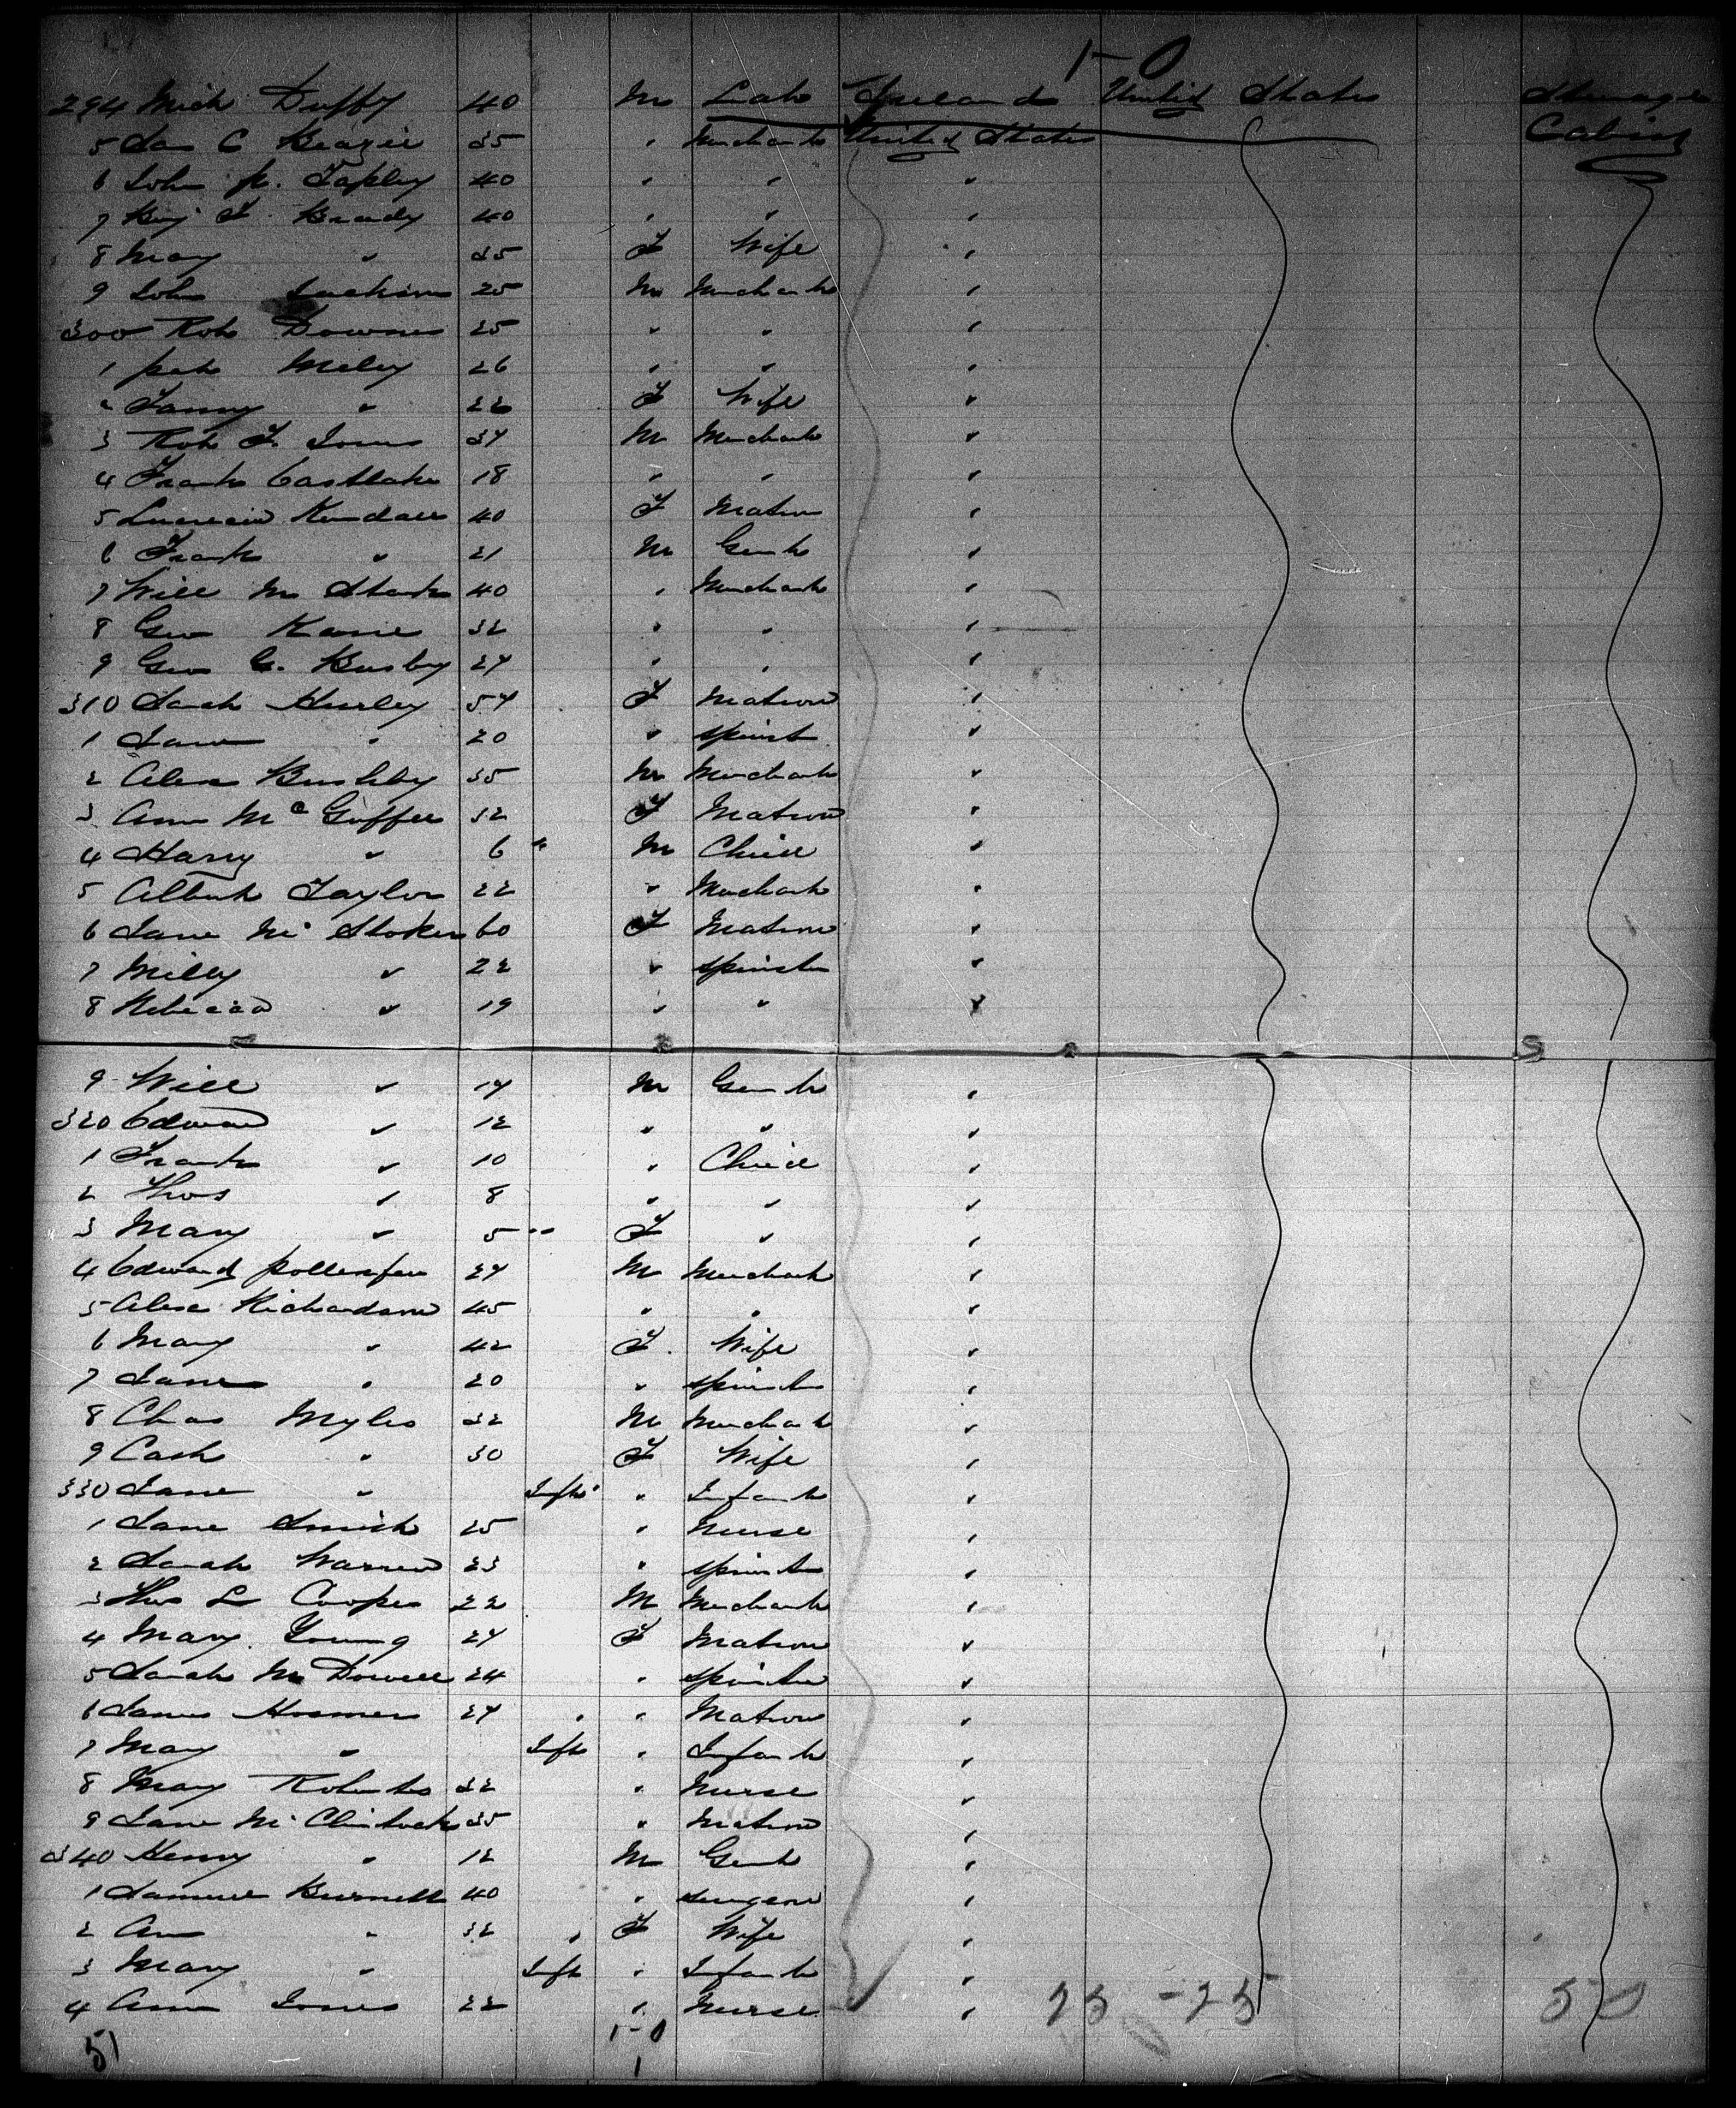 1-0
294 Mich Duffy 40 M Lab Ireland United States Steerage
5 Jas C Beazie 35 " Merchant United States Cabin
6 John P. Tapley 40 " " "
7 Benj F. Brady 40 " " "
8 Mary " 35 F Wife "
9 John Jackson 25 M Merchant "
300 Rob Downes 25 " " "
1 Pat Meley 26 " " "
2 Fanny " 22 F Wife "
3 Rob F. Jones 34 M Merchant "
4 Frank Eastlake 18 " " "
5 Lucrecia Kendall 40 F Matron "
6 Frank " 21 M Gent "
7 Will M Stark 40 " Merchant "
8 Geo Kane 32 " " "
9 Geo G. Busby 24 " " "
310 Sarah Hurley 54 F Matron "
1 Jane " 20 " Spinst "
2 Alex Bushby 35 M Merchant "
3 Ann McGuffee 32 F Matron "
4 Harry " 6 " M Child "
5 Albert Taylor 22 " Merchant "
6 Jane Mc Stoker 60 F Matron "
7 Milly " 22 " Spinster "
8 Rebecca " 19 " " "
9 Will " 14 M Gent "
320 Edward " 12 " " "
1 Frank " 10 " Child "
2 Thos " 8 " " "
3 Mary " 5 " F " "
4 Edward Pollexfen 24 M Merchant "
5 Alex Richardson 45 " " "
6 Mary " 42 F Wife "
7 Jane " 20 " Spinster "
8 Chas Myles 32 M Merchant "
9 Cath " 30 F Wife "
330 Jane " Inft " Infant "
1 Jane Smith 25 " Nurse "
2 Sarah Warren 23 " Spinster "
3 Thos L Cooper 22 M Merchant "
4 Mary Young 24 F Matron "
5 Sarah McDowell 24 " Spinster "
6 James Hosmer 24 " " Matron "
7 Mary " Inft " Infant "
8 Mary Roberts 32 " Nurse "
9 Jane McClintock 35 " Matron "
340 Henry " 12 M Gent "
1 Samuel Burnett 40 " Surgeon "
2 Ann " 32 " F Wife "
3 Mary " Inft " Infant "
4 Ann Jones 22 " Nurse "
25 - 25 50
51 1-0
1